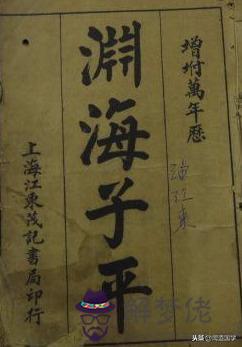 增坿萬年歷
淵海子平
上海江東茂記書局印行
解梦佬
头条 @闻道国学